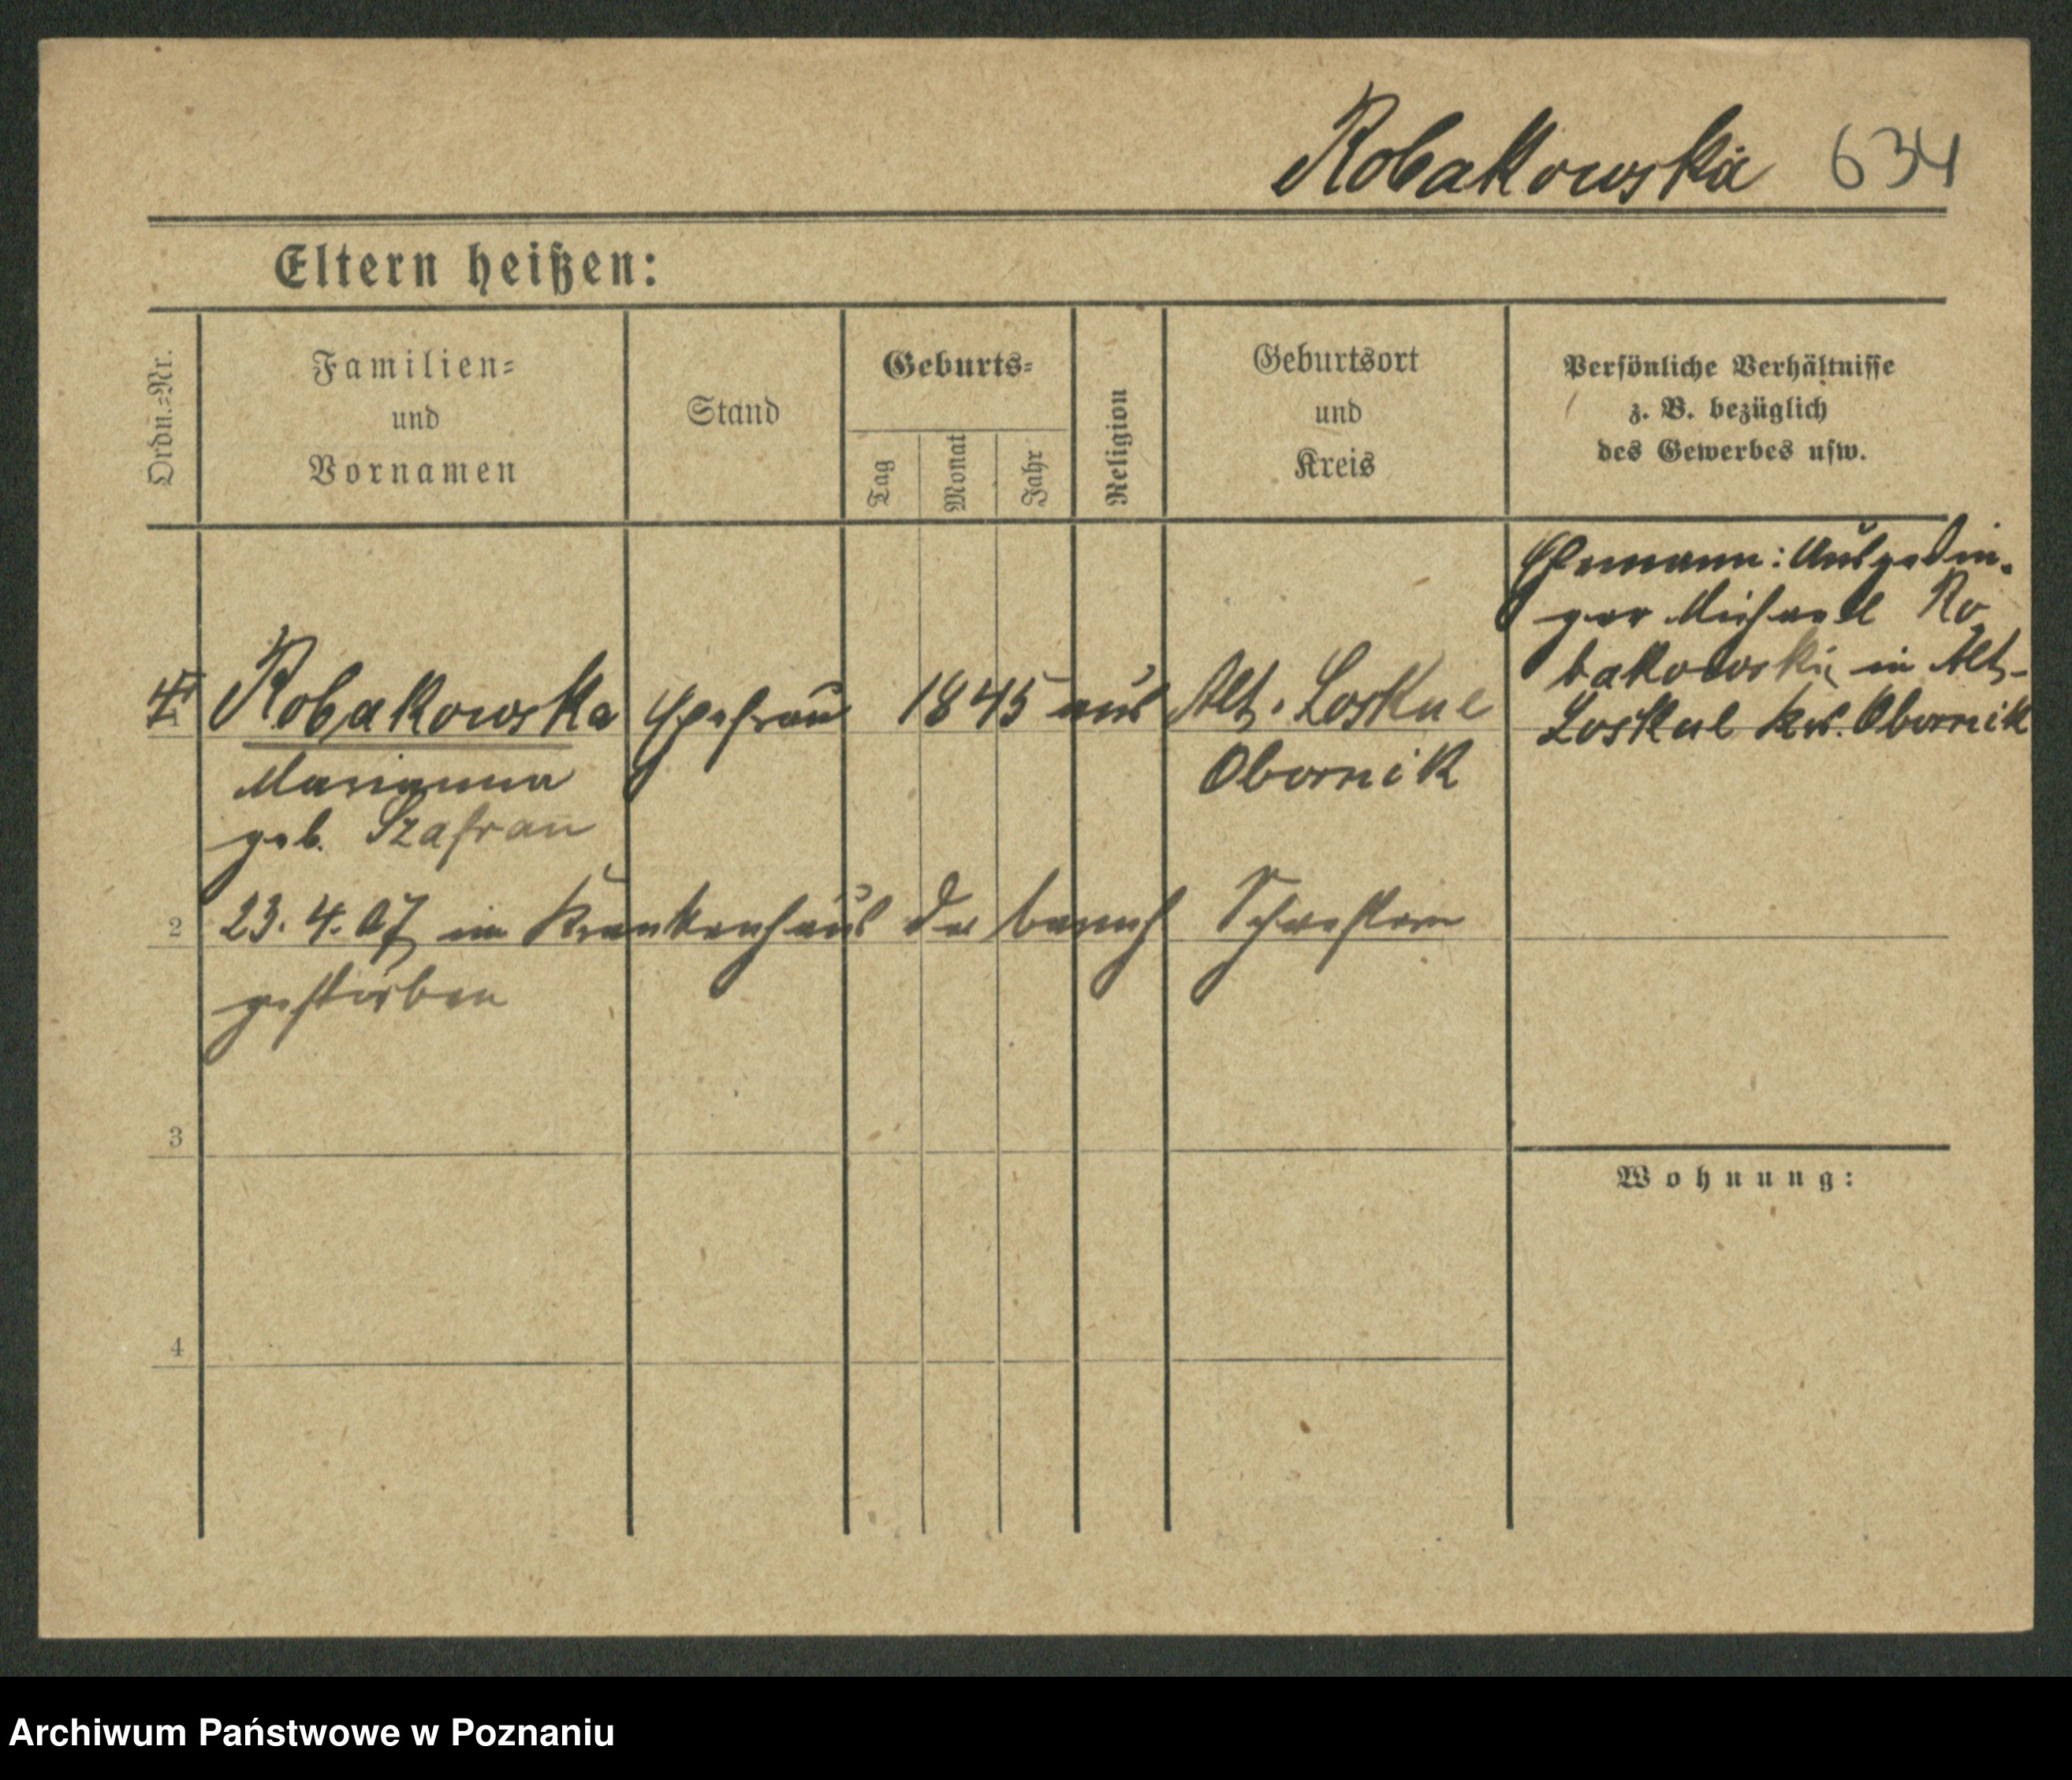 Robakowska 634
Eltern heißen:
Ordn.=Nr.
Familien=
und
Vornamen
Stand
Geburts=
Tag
Monat
Jahr
Religion
Geburtsort
und
Kreis
Persönliche Verhältnisse
z. B. bezüglich
des Gewerbes usw.
Ehemann: Ausgedin-
ger Michael Ro
bakowski, in Alt-
Loskul Krs. Obornik
1 Robakowska Ehefrau 1845 aus Alt. Loskul
Obornik
Marianna
geb. Szafran
2 23. 4. 07 im Krankenhaus der barmh Schwestern
gestorben
3
Wohnung:
4
Archiwum Państwowe w Poznaniu